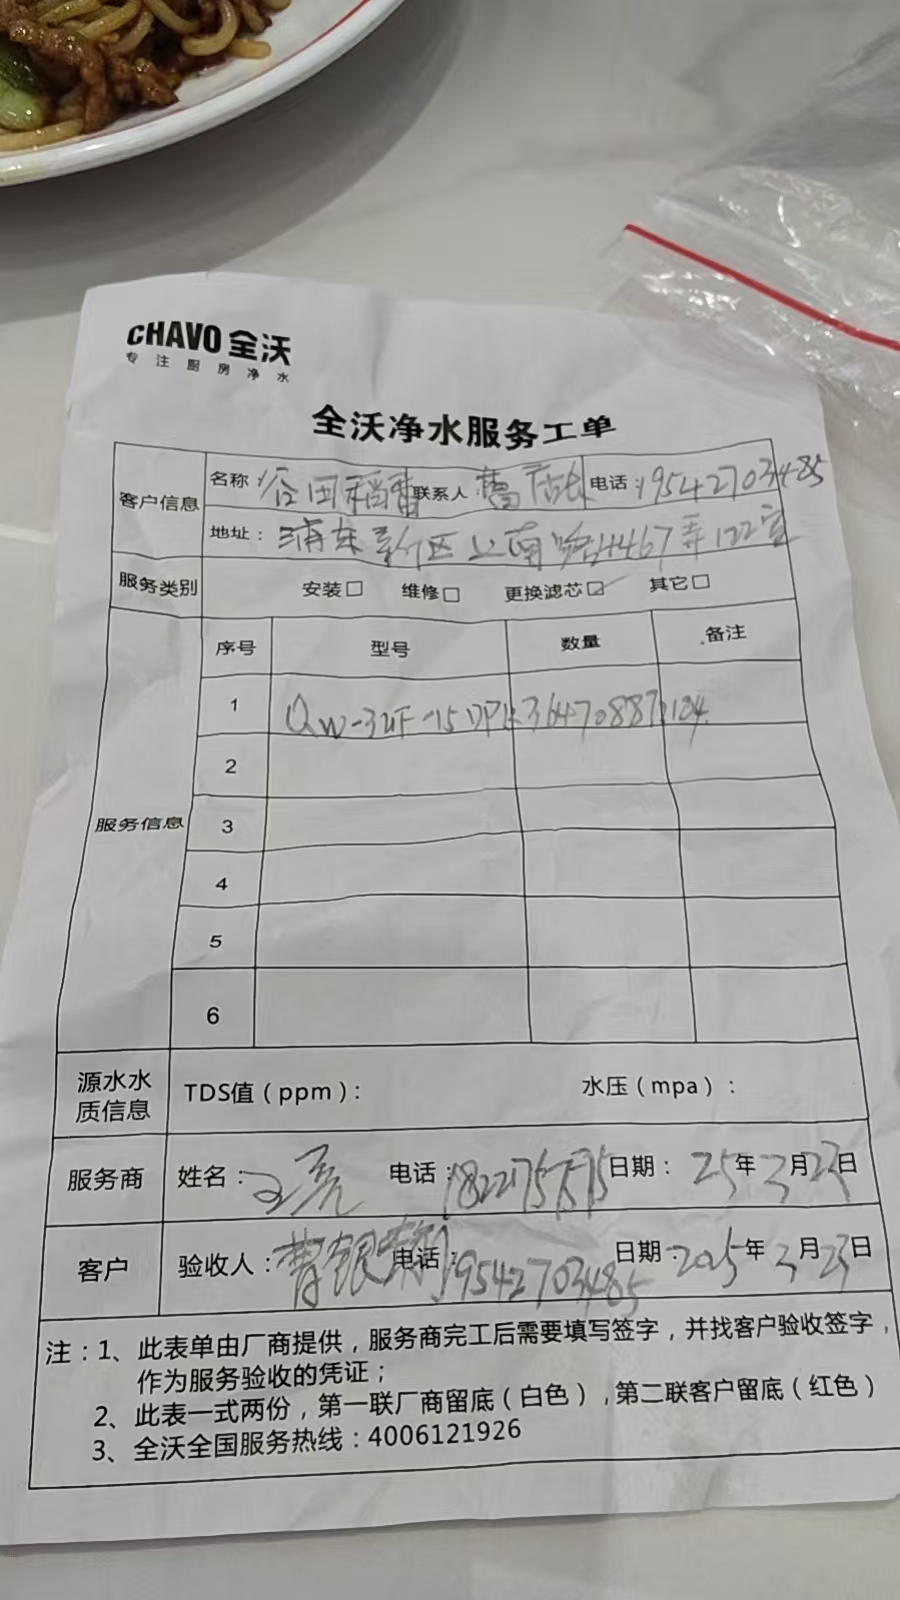 CHAVO 全沃
专注厨房净水
全沃净水服务工单
客户信息
名称：谷田稻香 联系人 曹店长 电话：19542703485
地址：浦东新区上南路4467弄122室
服务类别 安装□ 维修□ 更换滤芯☑ 其它□
服务信息
序号 型号 数量 备注
1 QW-3UF-15
2
3
4
5
6
源水水质信息 TDS值（ppm）： 水压（mpa）：
服务商 姓名： 电话： 日期：25年3月23日
客户 验收人：曹银 电话：19542703485 日期：2025年3月23日
注：1、此表单由厂商提供，服务商完工后需要填写签字，并找客户验收签字，
作为服务验收的凭证；
2、此表一式两份，第一联厂商留底（白色），第二联客户留底（红色）
3、全沃全国服务热线：4006121926